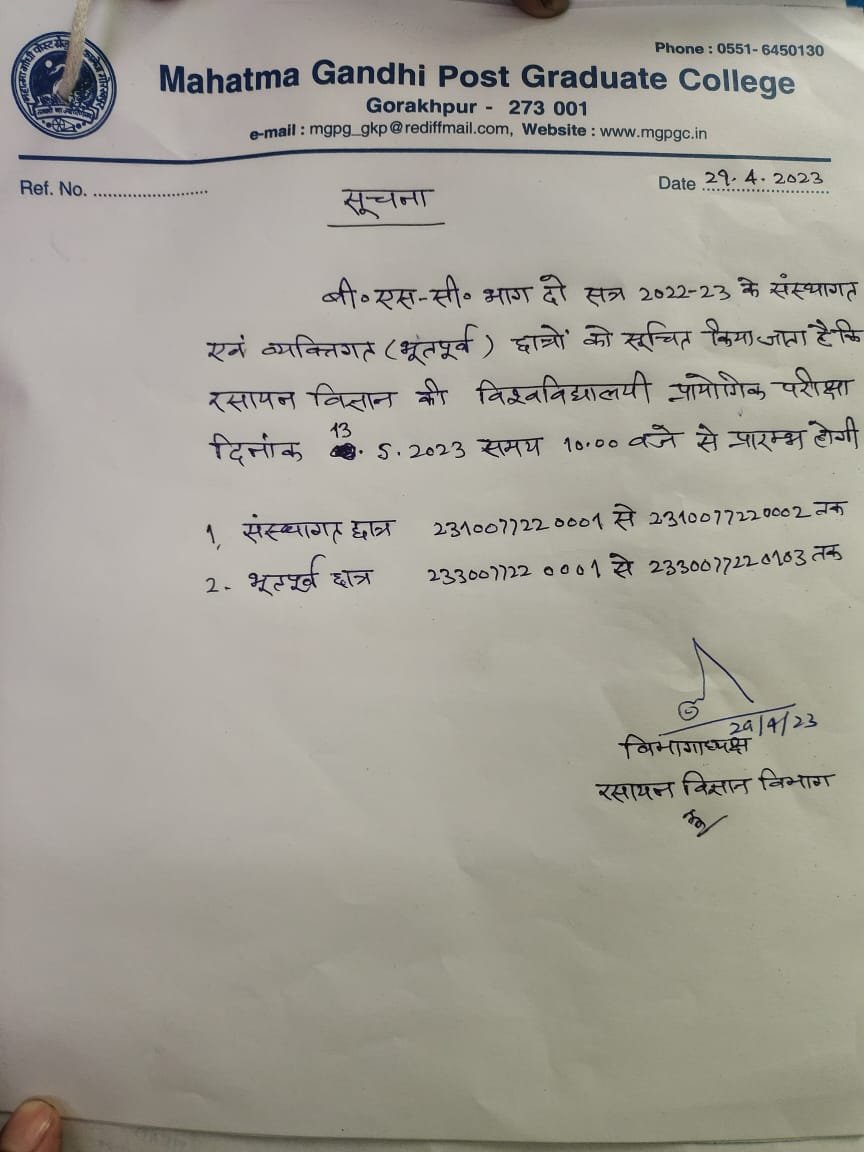 Phone : 0551- 6450130
Mahatma Gandhi Post Graduate College
Gorakhpur - 273 001
e-mail : mgpg_gkp@rediffmail.com, Website : www.mgpgc.in
Ref. No. ............................
Date 29.4.2023
सूचना
बी॰एस-सी॰ भाग दो सत्र 2022-23 के संस्थागत
एवं व्यक्तिगत (भूतपूर्व) छात्रों को सूचित किया जाता है कि
रसायन विज्ञान की विश्वविद्यालयी प्रायोगिक परीक्षा
दिनांक 13.5.2023 समय 10.00 बजे से प्रारम्भ होगी
1, संस्थागत छात्र 2310077220001 से 2310077220002 तक
2- भूतपूर्व छात्र 2330077220001 से 2330077220103 तक
29/4/23
विभागाध्यक्ष
रसायन विज्ञान विभाग